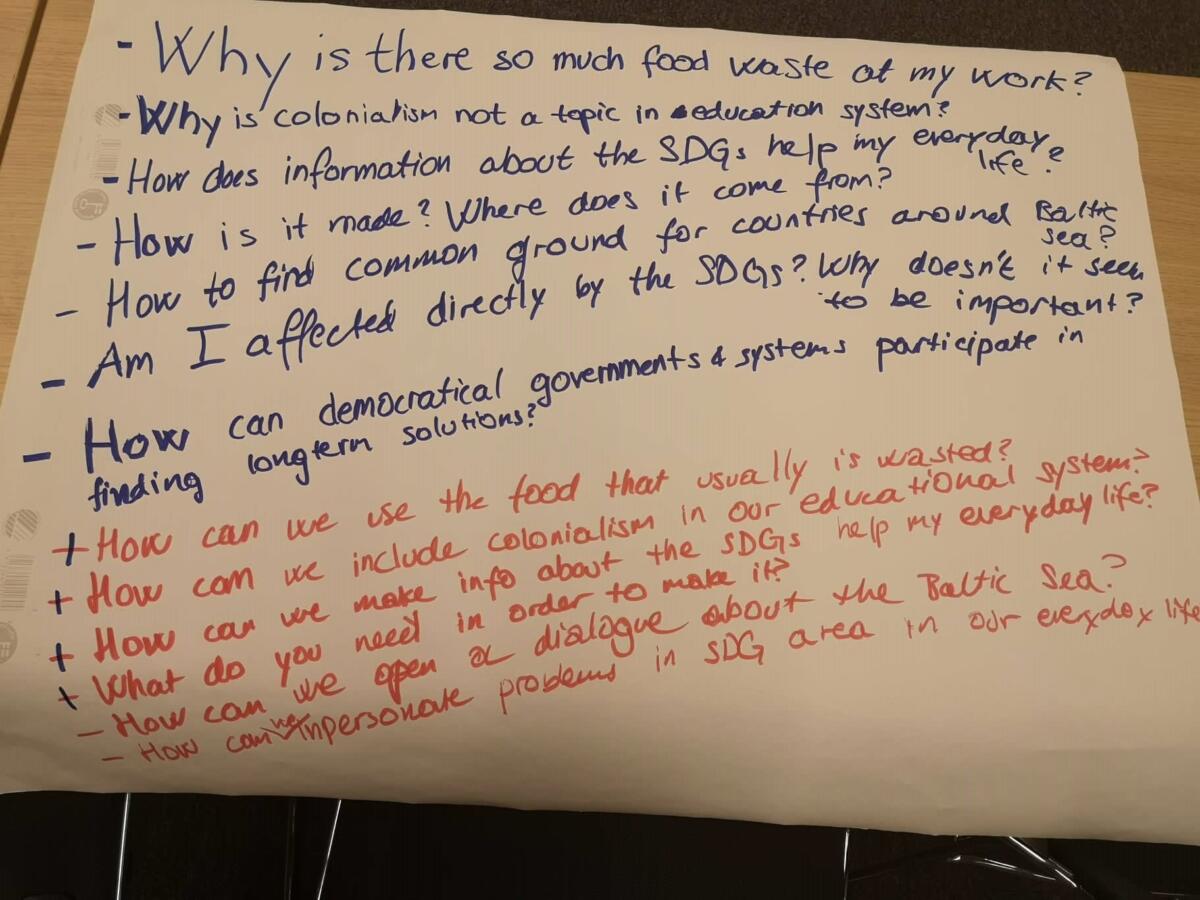 - Why is there so much food waste at my work?
- Why is colonialism not a topic in education system?
- How does information about the SDGs help my everyday
life?
- How is it made? Where does it come from?
- How to find common ground for countries around Baltic
sea?
- Am I affected directly by the SDGs? Why doesn't it seen
to be important?
- How can democratical governments & systems participate in
finding longterm solutions?
+ How can we use the food that usually is wasted?
+ How can we include colonialism in our educational system?
+ How can we make info about the SDGs help my everyday life?
+ What do you need in order to make it?
- How can we open a dialogue about the Baltic Sea?
- How can we inpersonate problems in SDG area in our everydox life